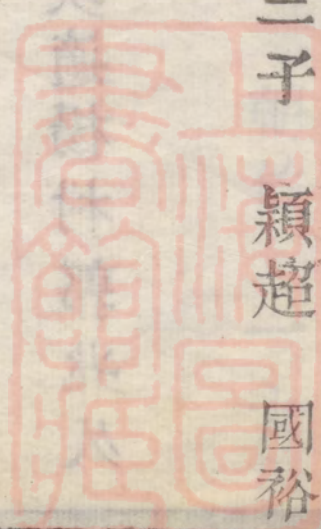 二子 穎超 國裕
上海圖
書館藏